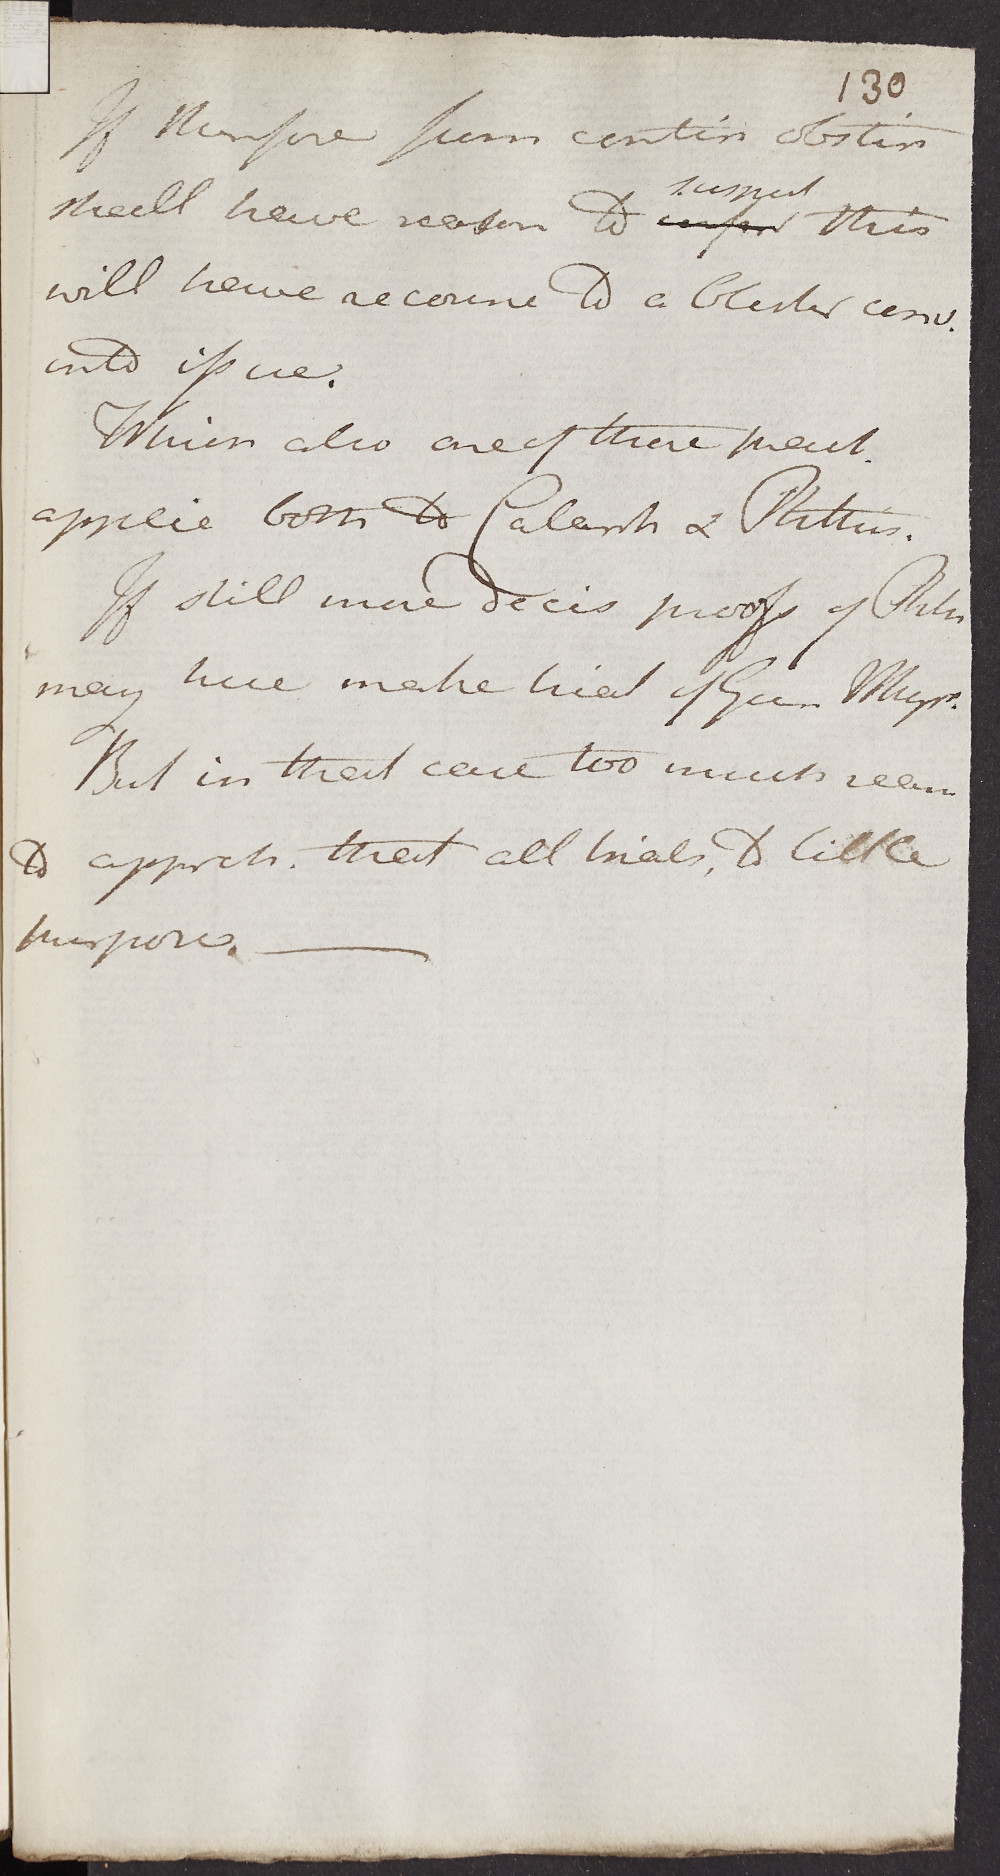 130
If therefore sum contin obstin
shall have reason to infer suspect this
will have recourse to a blister conv.
into issue.
Which also one of those pract.
applic both to Catarrh & Phthis.
If still more decis proofs of Phth
may here make trial of Gum Myrr.
But in that case too much reason
to appreh. that all trials, to little
purpose.